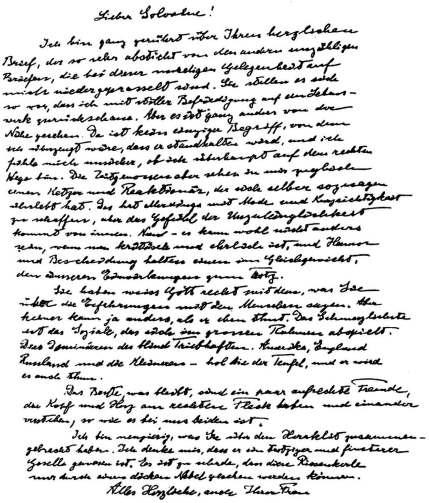 Lieber Solovine!
Ich bin ganz gerührt über Ihren herzlichen
Brief, der so sehr absticht von den andern unzähligen
Briefen, die bei dieser unseligen Gelegenheit auf
mich niedergeprasselt sind. Sie stellen es sich
so vor, dass ich mit stiller Befriedigung auf ein Lebens-
werk zurückschaue. Aber es ist ganz anders von der
Nähe gesehen. Da ist kein einziger Begriff, von dem
ich überzeugt wäre, dass er standhalten wird, und ich
fühle mich unsicher, ob ich überhaupt auf dem rechten
Wege bin. Die Zeitgenossen aber sehen in mir zugleich
einen Ketzer und Reaktionär, der sich selber sozusagen
überlebt hat. Das hat allerdings mit Mode und Kurzsichtigkeit
zu schaffen, aber das Gefühl der Unzulänglichkeit
kommt von innen. Nun - es kann wohl nicht anders
sein, wenn man kritisch und ehrlich ist, und Humor
und Bescheidung halten einen im Gleichgewicht,
den äusseren Einwirkungen zum Trotz.
Sie haben weiss Gott recht mit dem, was Sie
über die Erfahrungen mit den Menschen sagen. Aber
keiner kann ja anders, als er eben thut. Das Schmerzlichste
ist das Soziale, das sich im grossen Rahmen abspielt.
Dies Dominieren des blind Triebhaften. Amerika, England
Russland und die Kleineren - hol sie der Teufel, und er wird
es auch thun.
Das Beste, was bleibt, sind ein paar aufrechte Freunde,
die Kopf und Herz am rechten Fleck haben und einander
verstehen, so wie es bei uns beiden ist.
Ich bin neugierig, was Sie über den Heraklit zusammen-
gebracht haben. Ich denke mir, dass er ein trotziger und finsterer
Geselle gewesen ist. Es ist zu schade, dass diese Riesenkerle
nur durch einen dicken Nebel gesehen werden können.
Alles Herzliche, auch Ihrer Frau